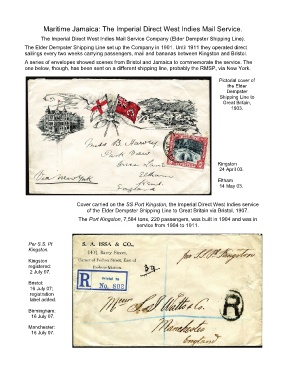 Maritime Jamaica: The Imperial Direct West Indies Mail Service.
The Imperial Direct West Indies Mail Service Company (Elder Dempster Shipping Line).
The Elder Dempster Shipping Line set up the Company in 1901. Until 1911 they operated direct
sailings every two weeks carrying passengers, mail and bananas between Kingston and Bristol.
A series of envelopes showed scenes from Bristol and Jamaica to commemorate the service. The
one below, though, has been sent on a different shipping line, probably the RMSP, via New York.
Pictorial cover of
the Elder
Dempster
Shipping Line to
Great Britain,
1903.
Miss B. Harvey
Park View
Lane
Eltham
Kent
England
Via New York
Kingston
24 April 03.
Eltham
14 May 03.
Cover carried on the SS Port Kingston, the Imperial Direct West Indies service
of the Elder Dempster Shipping Line to Great Britain via Bristol, 1907.
The Port Kingston, 7,584 tons, 220 passengers, was built in 1904 and was in
service from 1904 to 1911.
Per S.S. Pt
Kingston.
Kingston
registered:
2 July 07.
Bristol:
16 July 07;
registration
label added.
Birmingham:
16 July 07.
Manchester:
16 July 07.
S. A. ISSA & CO.,
Harry Street,
Corner of Preston Street, East of
per SS Pt Kingston
No. 802
R
Messrs A. S. Watts & Co.
Manchester
England